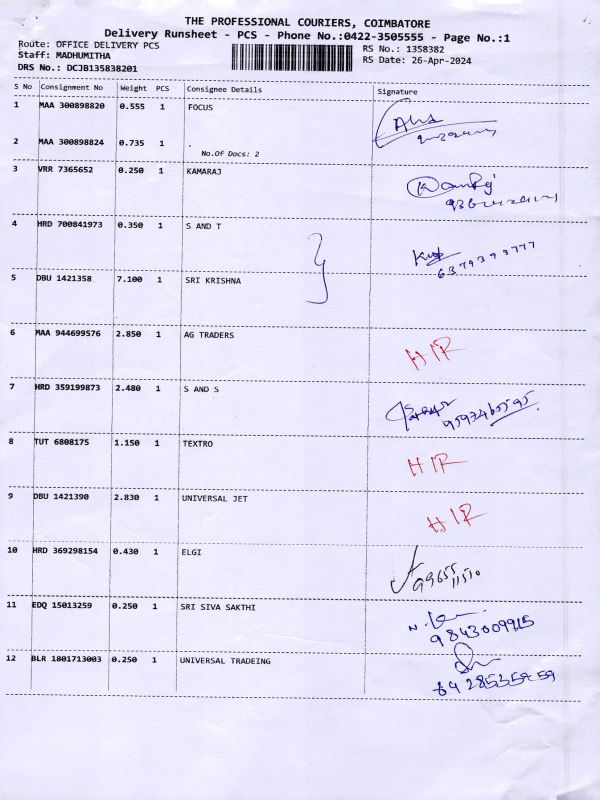 THE PROFESSIONAL COURIERS, COIMBATORE
Delivery Runsheet - PCS - Phone No.:0422-3505555 - Page No.:1
Route: OFFICE DELIVERY PCS RS No.: 1358382
Staff: MADHUMITHA RS Date: 26-Apr-2024
DRS No.: DCJB135838201
S No Consignment No Weight PCS Consignee Details Signature
1 MAA 300898820 0.555 1 FOCUS
2 MAA 300898824 0.735 1 .
No.Of Docs: 2
3 VRR 7365652 0.250 1 KAMARAJ
4 HRD 700841973 0.350 1 S AND T
6379393777
5 DBU 1421358 7.100 1 SRI KRISHNA
6 MAA 944699576 2.850 1 AG TRADERS
HIR
7 HRD 359199873 2.480 1 S AND S
9597465595
8 TUT 6808175 1.150 1 TEXTRO
HIR
9 DBU 1421390 2.830 1 UNIVERSAL JET
HIR
10 HRD 369298154 0.430 1 ELGI
99655
11510
11 EDQ 15013259 0.250 1 SRI SIVA SAKTHI
9843009915
12 BLR 1801713003 0.250 1 UNIVERSAL TRADEING